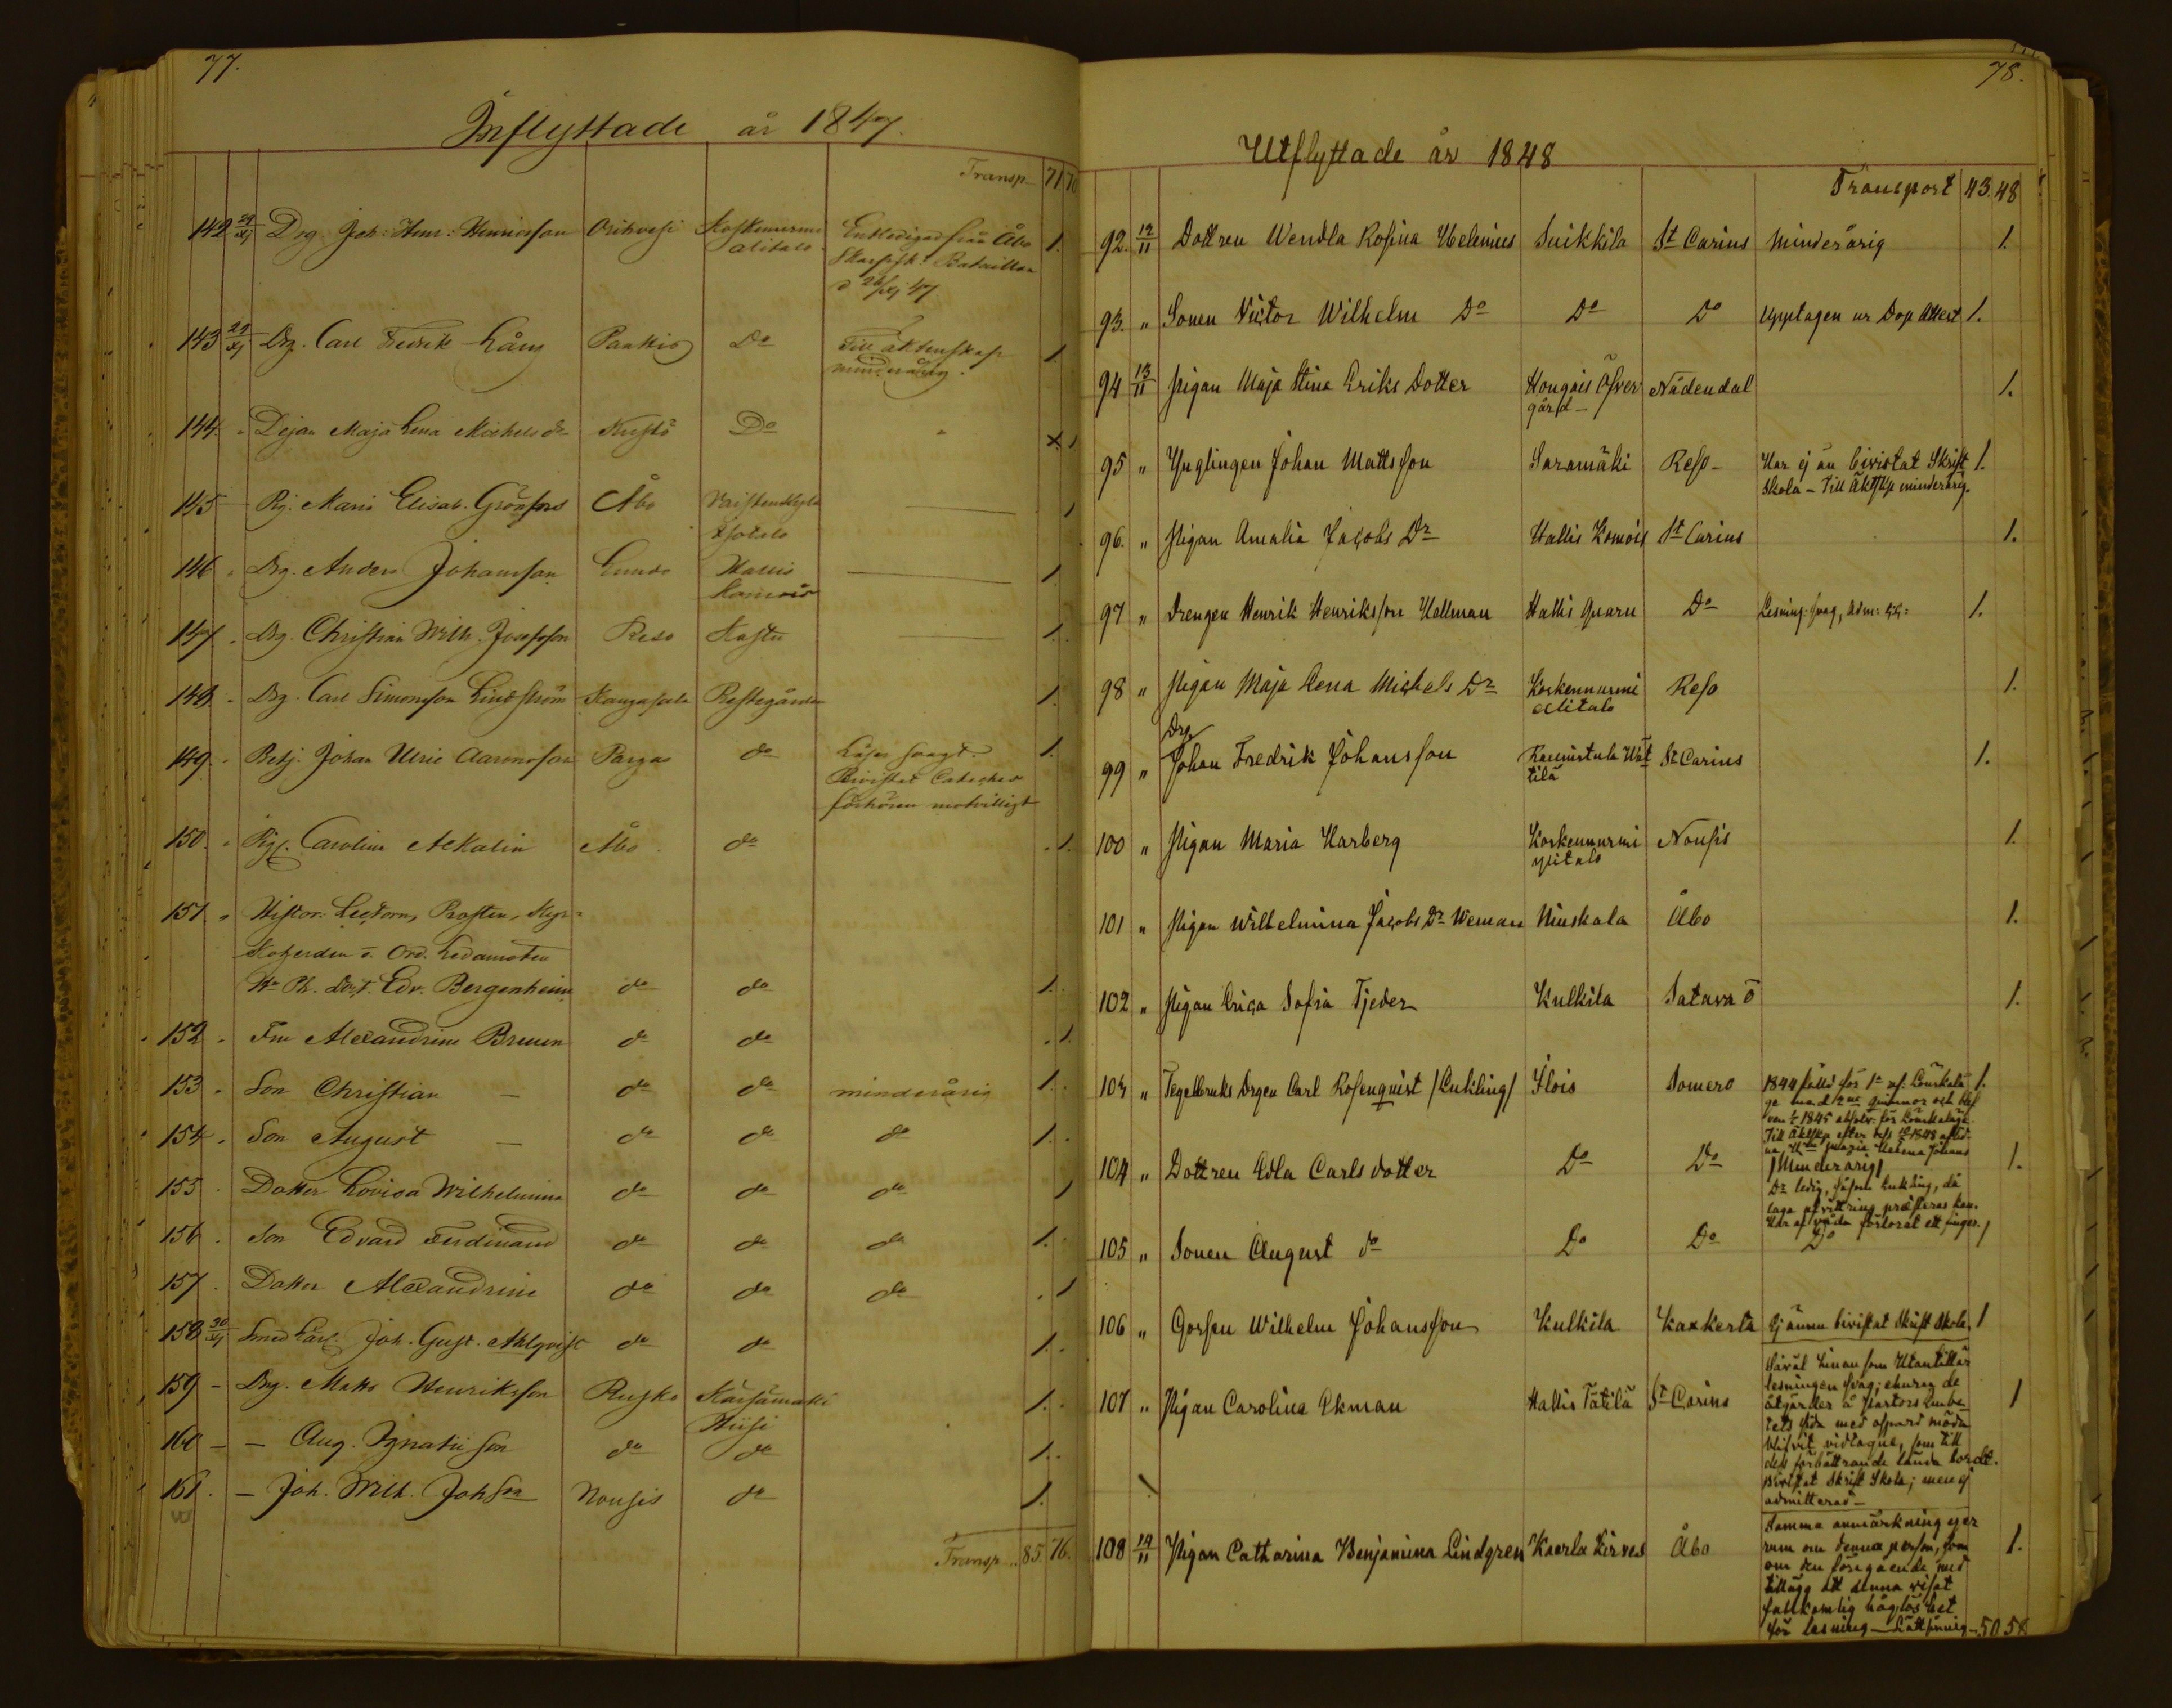 77.
Inflyttade år 1847.
Transp. 71 70
142 29/XI Drg. Joh: Henr: Henricsson Orihvesi Koskennurmi Entledigad från Åbo 1.
alitalo Skarpsk: Bataillon
d 26/XI 47
143 29/XI Drg. Carl Fredrik Lång Paattis Do Till äktenskap 1
minderårig.
144 " Pigan Maja Lena Michels dr Kustö Do "
145 Pig. Maria Elisab. Grönfors Åbo
146 " Drg. Anders Johansson Lundo Hallis 1
Komois
147 " Drg. Christian Wilh. Josefsson Reso Kastu 1.
148 " Drg. Carl Simonsson Lindström Kangasala Prestgården 1.
149 " Betj. Johan Ulric Aaronsson Pargas do Läser svagt. 1.
Bivistat Catechis
förhören motvilligt
150. " Pig. Carolina Åbo do 1.
151 " Histor: Lectorn, Prosten, Kyr-
koherden o. Ord. Ledamoten
Hr Ph. Edv. Bergenheim do do 1.
152 " Fru Alexandrine Bruun do do 1.
153 " Son Christian — do do minderårig 1.
154 " Son August — do do do 1.
155 Dotter Lovisa Wilhelmina do do do 1
156 . Son Edvard Ferdinand do do do 1.
157 . Dotter Alexandrine do do do 1
158 30/XI Smed Lärl. Joh. Gust. Ahlqvist do do 1.
159 — Drg. Matts Henriksson Rusko Kärsämäki 1.
Hiisi
160 — — Aug. Ignatii son do do 1.
161. — Joh. Wilh. Johson Nousis do 1.
Transp.. 85. 76.
78.
Utflyttade år 1848
Transport 43. 48
92. 12/11 Dottren Wendla Rosina Helenius Suikkila St Carins Minderårig 1.
93. " Sonen Victor Wilhelm Do Do Do Upptagen ur Dop Attest 1.
94 13/11 Pigan Maja Stina Eriks Dotter Hongais Öfver Nådendal 1.
gård —
95 " Ynglingen Johan Mattsson Saramäki Reso — Har ej än bivistat Skrift 1.
Skola — Till Äktskp minderårig.
96. " Pigan Amalia Jacobs Dr Hallis Komois St Carins 1.
97 " Drengen Henrik Henriksson Hallman Hallis Quarn Do Läsning: svag, Adm: 44: 1.
98 " Pigan Maja Lena Michels Dr Koskennurmi Reso 1.
alitalo
Drg
99 " Johan Fredrik Johansson Raunistula Wät St Carins 1.
tilä
100 " Pigan Maria Harberg Koskennurmi Nousis 1.
ylitalo
101 " Pigan Wilhelmina Jacobs Dr Weman Niuskala Åbo 1.
102 " Pigan Erica Sofia Tjeder Kulkila Satava ö 1.
103 " Tegelbruks Drgen Carl Rosenquist /Enkling/ Ilois Somero 1844 fälld för 1a Lönskalä 1.
ge med 2ne qvinnor och
1845 absolv: för Lönskaläge
Till Äktskp efter 1848 aflid
na Maria Helena Johans
104 " Dottren Edla Carlsdotter Do Do /Minderårig/ 1.
Dr ledig, såsom Enkling, då
laga afvittring præsteras kan.
Har af våda förlorat ett finger. /
105 " Sonen August do Do Do Do
106 " Gossen Wilhelm Johansson Kulkila Kaxkerta Ej ännu bivistat Skrift Skola, 1
107 " Pigan Carolina Ekman Hallis Tätilä St Carins Såväl Innan som Utantill 1
läsningen svag; ehuru de
åtgärder å Pastors Embe-
tets sida med ospard möda
blifvit vidtagne, som till
dess förbättrande lända bordt.
Bivistat Skrift Skola; men ej
admitterad —
108 14/11 Pigan Catharina Benjamina Lindgren Kaerla Kirves Åbo Samma anmärkning eger 1.
rum om denna person, som
om den föregående med
tillägg att denna visat
fullkomlig håglöshet
för läsning — Lättsinnig — 50 58